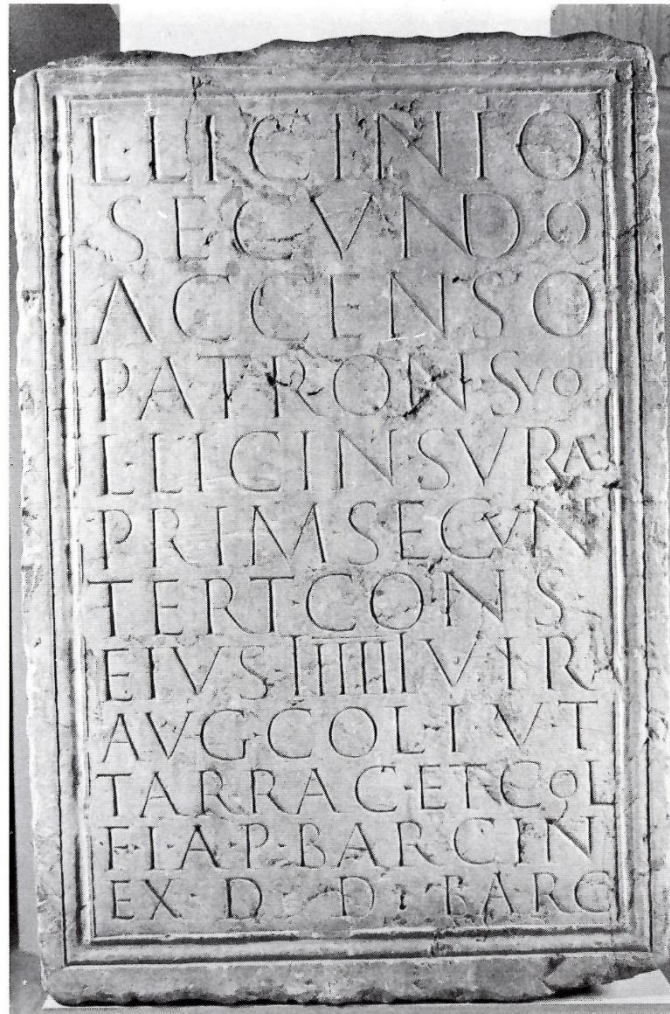 L·LICINIO
SECVNDO
ACCENSO
PATRON·SVO
L·LICIN·SVRAE
PRIM·SECVN
TERT·CONS
EIVS IIIIIIVIR
AVG·COL·I·V·T
TARRAC·ET·COL
F·I·A·P·BARCIN
EX D·D·BARC